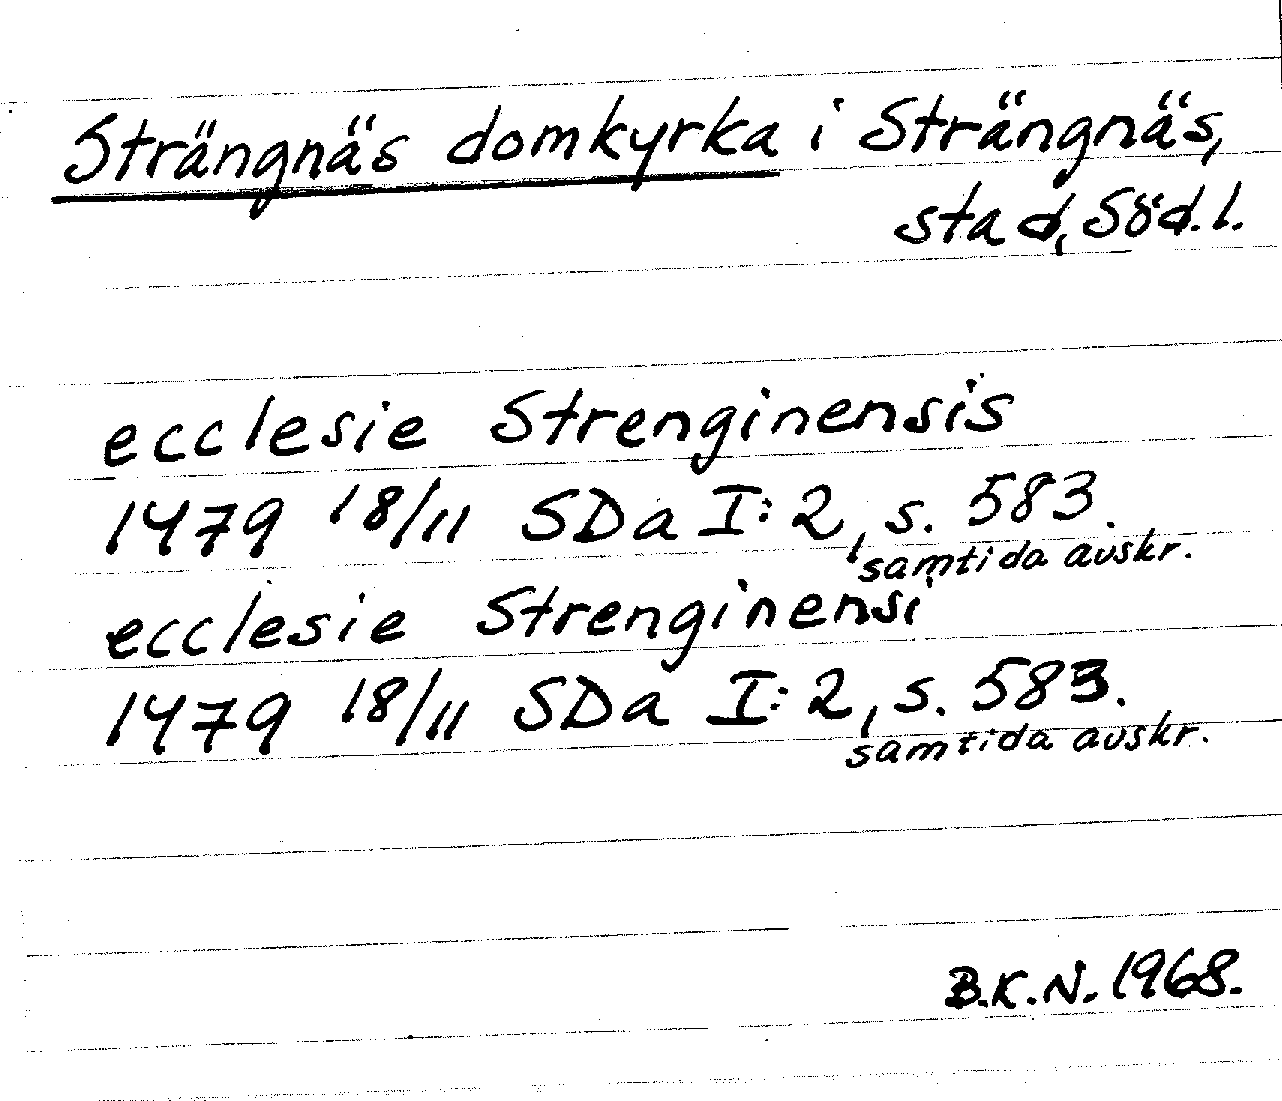 Strängnäs domkyrka i Strängnäs,
stad, Söd. l.
ecclesie Strenginensis
1479 18/11 SDa I:2, s. 583.
samtida avskr.
ecclesie Strenginensi
1479 18/11 SDa I:2, s. 583.
samtida avskr.
B.K.N. 1968.